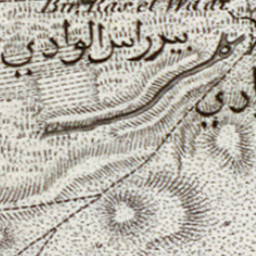 Bir Ras el Wadi
بير راس الوادي